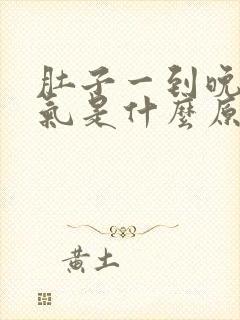 肚子一到晚
氣是什麼原
黃土